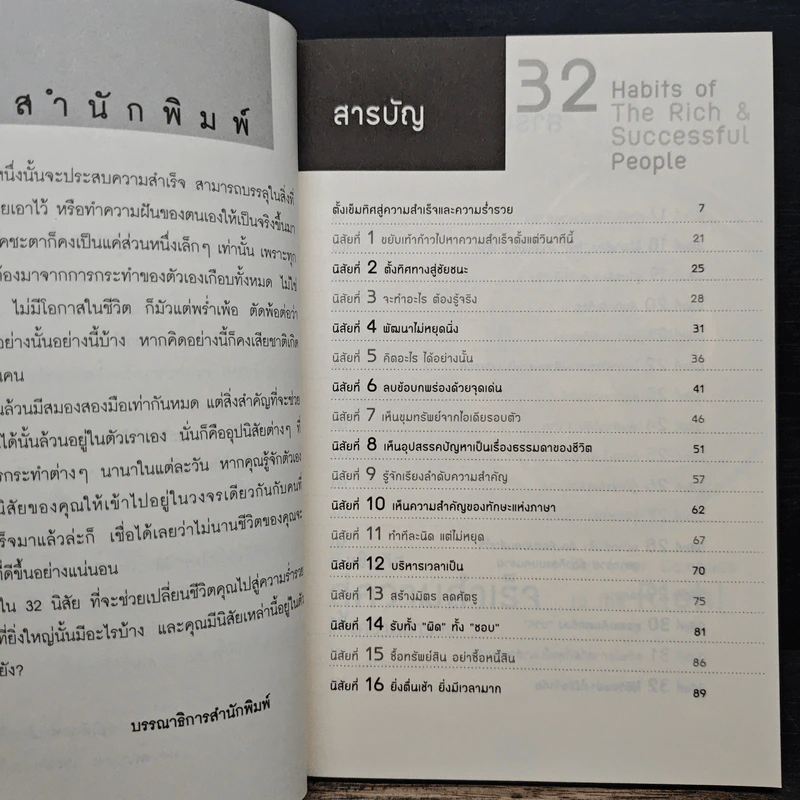 สำนักพิมพ์
หนึ่งนั้นจะประสบความสำเร็จ สามารถบรรลุในสิ่งที่
เอาไว้ หรือทำความฝันของตนเองให้เป็นจริงขึ้นมา
ชะตาก็คงเป็นแค่ส่วนหนึ่งเล็กๆ เท่านั้น เพราะทุก
มาจากการกระทำของตัวเองเกือบทั้งหมด ไม่ใช่
ไม่มีโอกาสในชีวิต ก็มัวแต่พร่ำเพ้อ ตัดพ้อต่อว่า
อย่างนั้นอย่างนี้บ้าง หากคิดอย่างนี้ก็คงเสียชาติเกิด
คน
ล้วนมีสมองสองมือเท่ากันหมด แต่สิ่งสำคัญที่จะช่วย
ได้นั้นล้วนอยู่ในตัวเราเอง นั่นก็คืออุปนิสัยต่างๆ ที่
กระทำต่างๆ นานาในแต่ละวัน หากคุณรู้จักตัวเอง
นิสัยของคุณให้เข้าไปอยู่ในวงจรเดียวกันกับคนที่
มาแล้วล่ะก็ เชื่อได้เลยว่าไม่นานชีวิตของคุณจะ
ที่ดีขึ้นอย่างแน่นอน
ใน 32 นิสัย ที่จะช่วยเปลี่ยนชีวิตคุณไปสู่ความร่ำรวย
ที่ยิ่งใหญ่นั้นมีอะไรบ้าง และคุณมีนิสัยเหล่านี้อยู่ในตัว
ยัง?
บรรณาธิการสำนักพิมพ์
สารบัญ
32
Habits of
The Rich &
Successful
People
ตั้งเข็มทิศสู่ความสำเร็จและความร่ำรวย 7
นิสัยที่ 1 ขยับเท้าก้าวไปหาความสำเร็จตั้งแต่วินาทีนี้ 21
นิสัยที่ 2 ตั้งทิศทางสู่ชัยชนะ 25
นิสัยที่ 3 จะทำอะไร ต้องรู้จริง 28
นิสัยที่ 4 พัฒนาไม่หยุดนิ่ง 31
นิสัยที่ 5 คิดอะไร ได้อย่างนั้น 36
นิสัยที่ 6 ลบข้อบกพร่องด้วยจุดเด่น 41
นิสัยที่ 7 เห็นขุมทรัพย์จากไอเดียรอบตัว 46
นิสัยที่ 8 เห็นอุปสรรคปัญหาเป็นเรื่องธรรมดาของชีวิต 51
นิสัยที่ 9 รู้จักเรียงลำดับความสำคัญ 57
นิสัยที่ 10 เห็นความสำคัญของทักษะแห่งภาษา 62
นิสัยที่ 11 ทำทีละนิด แต่ไม่หยุด 67
นิสัยที่ 12 บริหารเวลาเป็น 70
นิสัยที่ 13 สร้างมิตร ลดศัตรู 75
นิสัยที่ 14 รับทั้ง "ผิด" ทั้ง "ชอบ" 81
นิสัยที่ 15 ซื้อทรัพย์สิน อย่าซื้อหนี้สิน 86
นิสัยที่ 16 ยิ่งตื่นเช้า ยิ่งมีเวลามาก 89